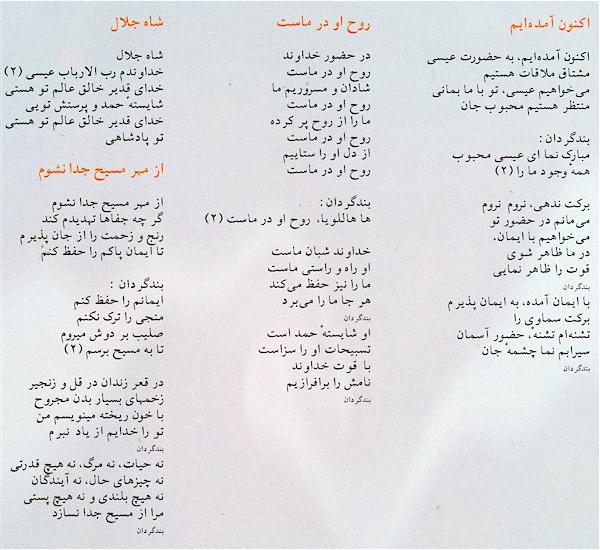 اکنون آمده‌ایم
اکنون آمده‌ایم، به حضورت عیسی
مشتاق ملاقات هستیم
می‌خواهیم عیسی، تو با ما بمانی
منتظر هستیم محبوب جان
بندگردان :
مبارک نما ای عیسی محبوب
همهٔ وجود ما را (۲)
برکت ندهی، نروم نروم
می‌مانم در حضور تو
می‌خواهیم با ایمان،
در ما ظاهر شوی
قوت را ظاهر نمایی
بندگردان
با ایمان آمده، به ایمان پذیرم
برکت سماوی را
تشنه‌ام تشنه، حضور آسمان
سیرابم نما چشمهٔ جان
بندگردان
روح او در ماست
در حضور خداوند
روح او در ماست
شادان و مسروریم ما
روح او در ماست
ما را از روح پر کرده
روح او در ماست
از دل او را ستاییم
روح او در ماست
بندگردان :
ها هاللویا، روح او در ماست (۲)
خداوند شبان ماست
او راه و راستی ماست
ما را نیز حفظ می‌کند
هر جا ما را می‌برد
بندگردان
او شایستهٔ حمد است
تسبیحات او را سزاست
با قوت خداوند
نامش را برافرازیم
بندگردان
شاه جلال
شاه جلال
خداوندم رب الارباب عیسی (۲)
خدای قدیر خالق عالم تو هستی
شایستهٔ حمد و پرستش تویی
خدای قدیر خالق عالم تو هستی
تو پادشاهی
از مهر مسیح جدا نشوم
از مهر مسیح جدا نشوم
گر چه جفاها تهدیدم کند
رنج و زحمت را از جان پذیرم
تا ایمان پاکم را حفظ کنم
بندگردان :
ایمانم را حفظ کنم
منجی را ترک نکنم
صلیب بر دوش میروم
تا به مسیح برسم (۲)
در قعر زندان در قل و زنجیر
زخمهای بسیار بدن مجروح
با خون ریخته مینویسم من
تو را خدایم از یاد نبرم
بندگردان
نه حیات، نه مرگ، نه هیچ قدرتی
نه چیزهای حال، نه آیندگان
نه هیچ بلندی و نه هیچ پستی
مرا از مسیح جدا نسازد
بندگردان